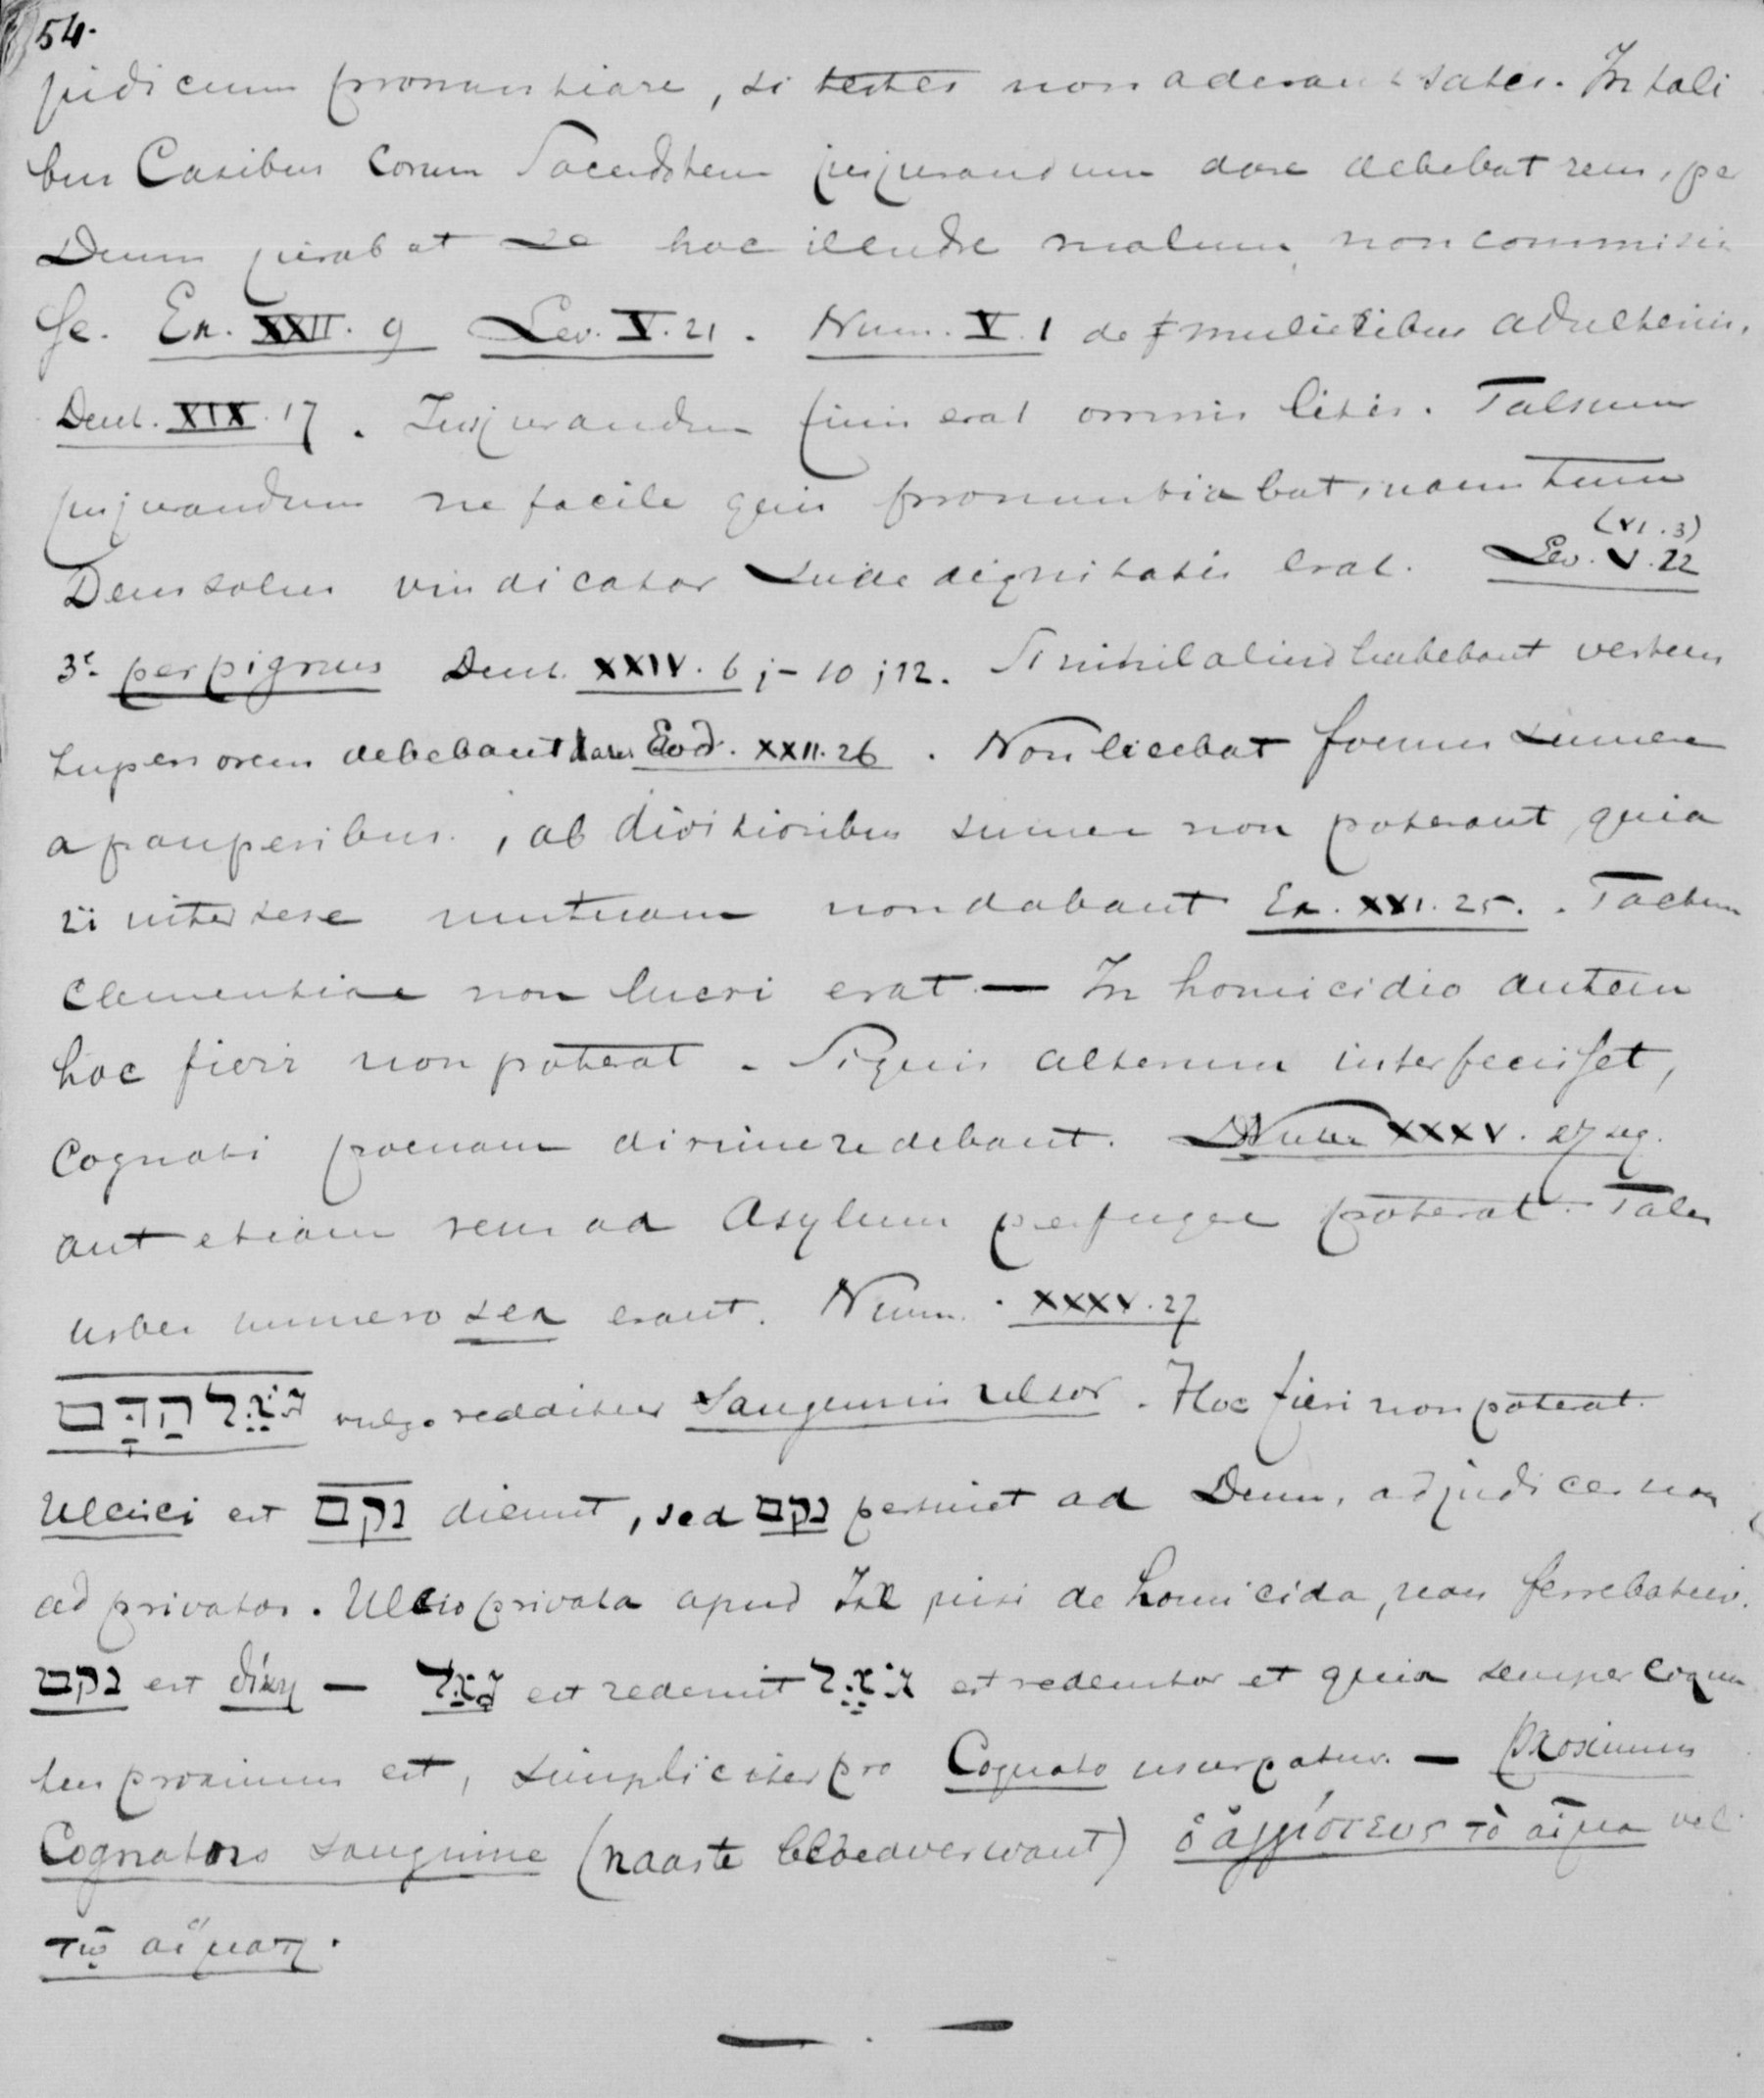 54.
judicum pronuntiare, si testes non aderant sates. In tali
bus Casibus Coram Sacerdotem jusjurandum dare debebat reus, per
Deum jurabat se hoc illudve malum non commisis
se. Ex. XXII. 9 Lev. V. 21. Num. V. 1 de mulieribus adulteriis.
Deut. XIX. 17. Jusjurandum finis erat omnis litis. Falsum
jusjurandum ne facile quis pronuntiabat, nam tum
(VI. 3)
Deus solus vindicator suae dignitatis erat. Lev. V. 22
3.° per pignus Deut. XXIV. 6; - 10; 12. Si nihil aliud habebant vestem
superiorem debebant dare Exod. XXII. 26. Non licebat foenus sumere
a pauperibus., ab divitioribus sumere non poterant, quia
ii inter sese mutuam non dabant Ex. XXI. 25.. Factum
Clementiae non lucri erat. — In homicidio autem
hoc fieri non poterat. Si quis alterum interfecisset,
Cognati poenam dirimere debant. Num XXXV. 27 sq.
aut etiam reus ad Asylum perfugere poterat. Tales
urbes numero sex erant. Num. XXXV. 27
גֹּאֵל הַדָּם vulgo redditur Sanguinis ultor. Hoc fieri non poterat.
Ulcisci est נקם dicunt, sed נקם pertinet ad Deum, ad judices non
ad privatos. Ultio privata apud Isl nisi de homicida, non ferrebatur.
נקם est δίκη — גָּאַל est redemit גֹּאֵל est redemtor et quia semper cogna
tus proximus est, simpliciter pro Cognato usurpatur. — Proximus
Cognators sanguine (naaste bloedverwant) ὁ ἀγχιστευς τὸ αἷμα vel
τῷ αἵματι.